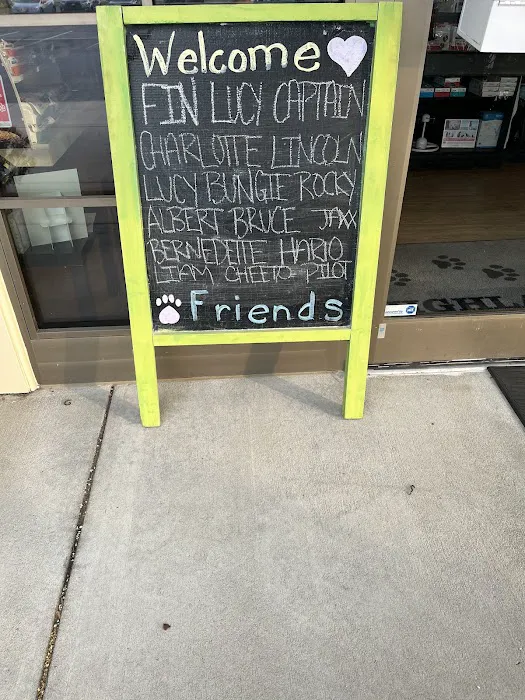 Welcome
FIN LUCY CAPTAIN
CHARLOTTE LINCOLN
LUCY BUNGIE ROCKY
ALBERT BRUCE JAXX
BERNEDETTE HARIO
LIAM CHEETO PILOT
Friends
GHL